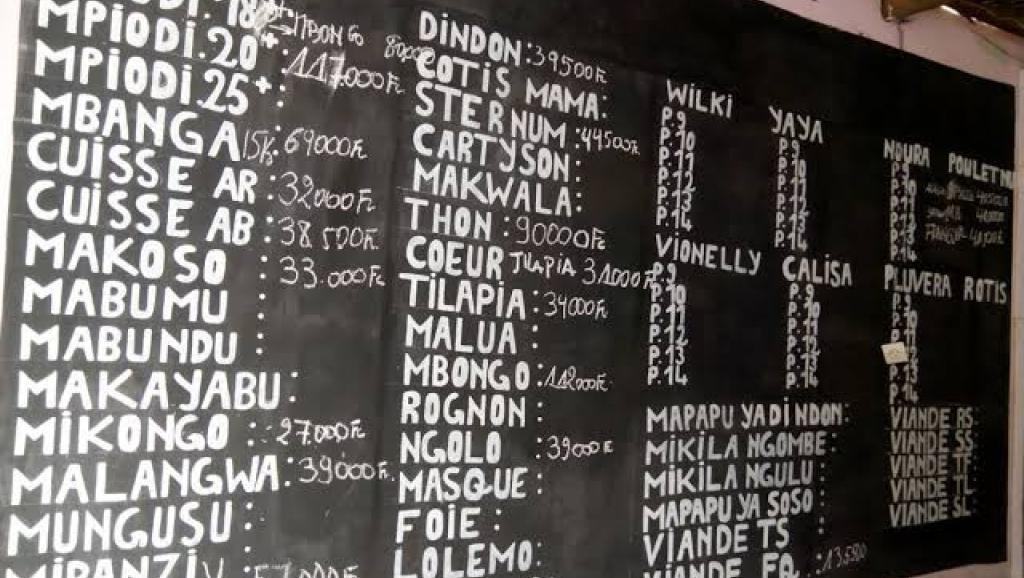 MPIODI.20+: 117.000Fc
MPIODI.25+:
MBANGA 15k: 69000Fc
CUISSE AR : 32000Fc
CUISSE AB : 38 500Fc
MAKOSO : 33.000Fc
MABUMU :
MABUNDU :
MAKAYABU :
MIKONGO : 27000Fc
MALANGWA : 39000Fc
MUNGUSU :
DINDON : 39500Fc
COTIS MAMA :
STERNUM : 44500Fc
CARTYSON :
MAKWALA :
THON : 90000Fc
COEUR TILAPIA 31000Fc
TILAPIA : 34000Fc
MALUA :
MBONGO : 112000Fc
ROGNON :
NGOLO : 39000Fc
MASQUE :
FOIE :
LOLEMO :
WILKI
P.9
P.10
P.11
P.12
P.13
P.14
VIONELLY
P.9
P.10
P.11
P.12
P.13
P.14
YAYA
P.9
P.10
P.11
P.12
P.13
P.14
CALISA
P.9
P.10
P.11
P.12
P.13
P.14
NDURA
P.9
P.10
P.11
P.12
P.13
P.14
PLUVERA ROTIS
P.9
P.10
P.11
P.13
P.14
MAPAPU YA DINDON :
MIKILA NGOMBE :
MIKILA NGULU :
MAPAPU YA SOSO :
VIANDE TS :
VIANDE FQ : 13500
VIANDE RS :
VIANDE SS :
VIANDE TF :
VIANDE TL :
VIANDE SL :